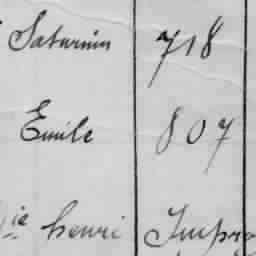 Saturnin 718
Emile 807
ie henri